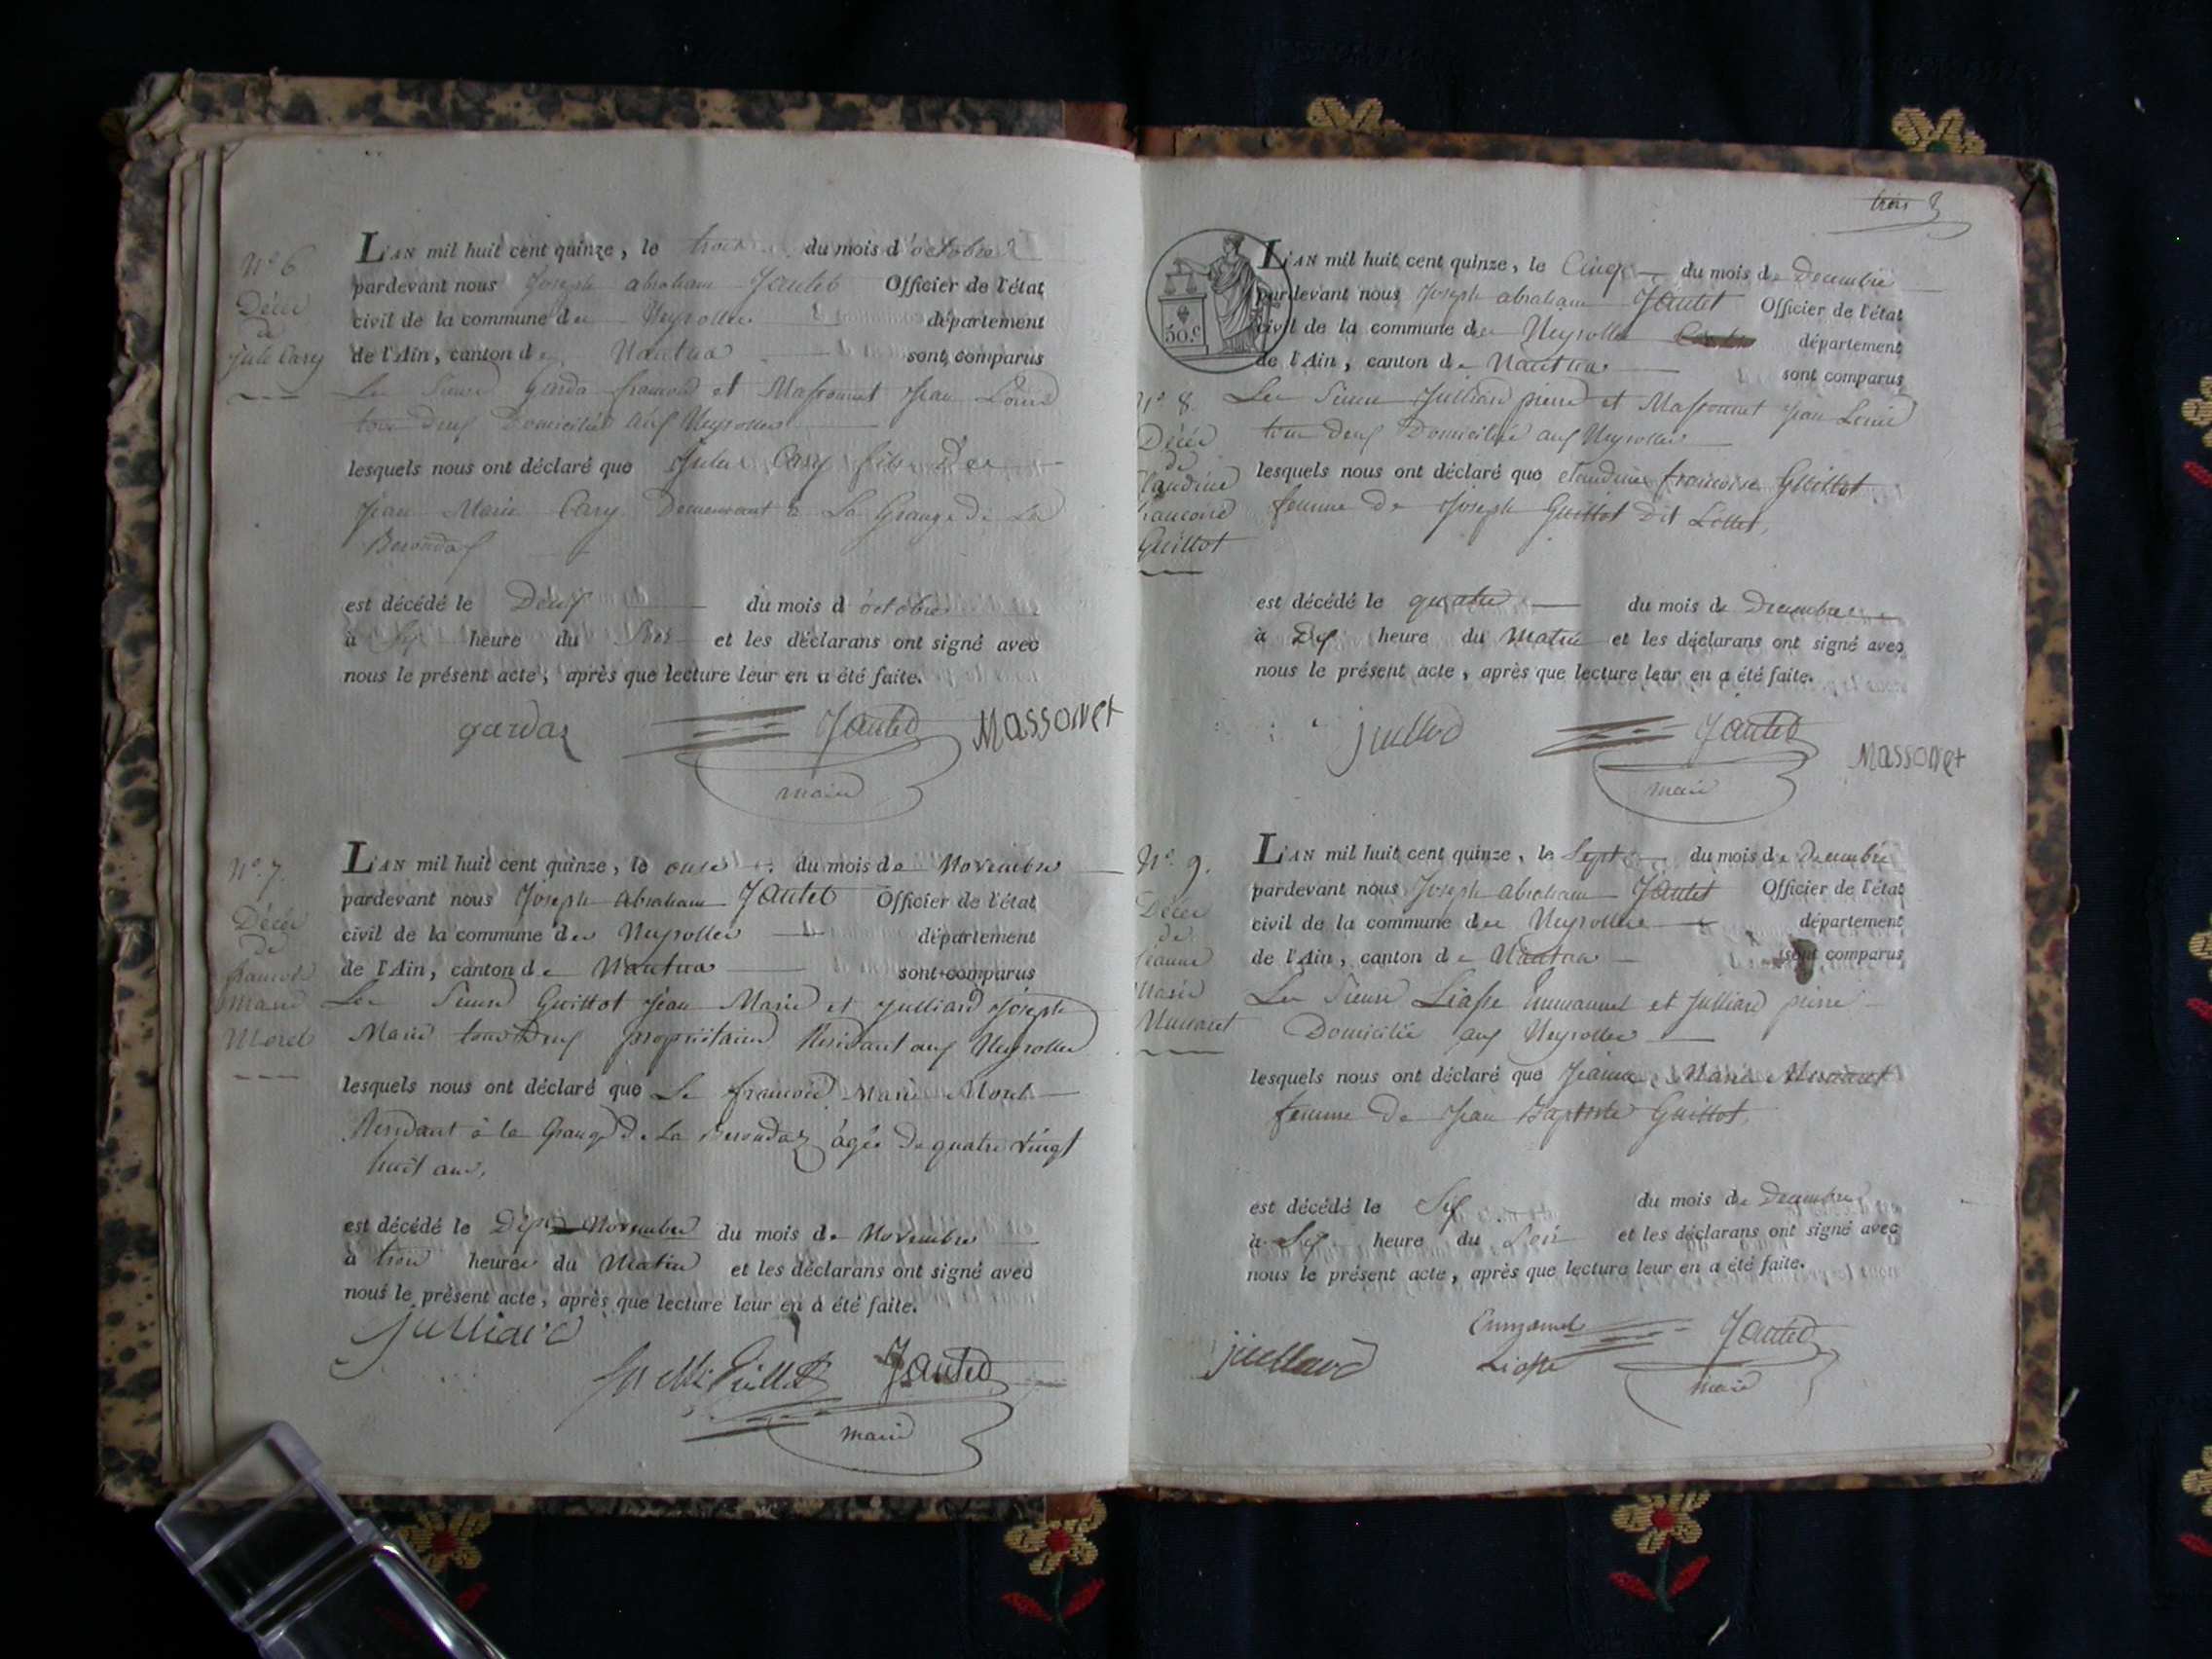 N.º 6
Décès
de
Jule Cary
L'AN mil huit cent quinze, le trois du mois d'octobre
pardevant nous Joseph abraham Jantet Officier de l'état
civil de la commune des Neyrolles département
de l'Ain, canton de Nantua sont comparus
Les Sieurs Garda francois et Massonnet Jean Louis
tous deux Domiciliés aux Neyrolles
lesquels nous ont déclaré que Jules Cary fils de
Jean Marie Cary Demeurant à La Grange de La
est décédé le Deux du mois d'octobre
à Six heure du Soir et les déclarans ont signé avec
nous le présent acte, après que lecture leur en a été faite.
gardaz Jantet Massonet
maire
N.º 7.
Décès
de
francois
Marie
Moret
L'AN mil huit cent quinze, le onze du mois de Novembre
pardevant nous Joseph Abraham Jantet Officier de l'état
civil de la commune des Neyrolles département
de l'Ain, canton de Nantua sont comparus
Les Sieurs Guillot Jean Marie et Julliard Joseph
Marie tous Deux propriétaires Résidant aux Neyrolles
lesquels nous ont déclaré que Le francois Marie Moret
Résidant à la Grange de La âgé de quatre vingt
huit ans,
est décédé le Dix Novembre du mois de Novembre
à trois heures du Matin et les déclarans ont signé avec
nous le présent acte, après que lecture leur en a été faite.
julliard
Guillot Jantet
maire
trois
50.c
L'AN mil huit cent quinze, le Cinq du mois de Decembre
pardevant nous Joseph abraham Jantet Officier de l'état
civil de la commune des Neyrolles département
de l'Ain, canton de Nantua sont comparus
N.º 8.
Décès
de
Claudine
francoise
Guillot
Les Sieurs Julliard pierre et Massonnet Jean Louis
tous deux Domiciliés aux Neyrolles
lesquels nous ont déclaré que claudine francoise Guillot
femme de Joseph Guillot dit Lollet,
est décédé le quatre du mois de Decembre
à Dix heure du Matin et les déclarans ont signé avec
nous le présent acte, après que lecture leur en a été faite.
jullard Jantet Massonet
maire
N.º 9.
Décès
de
Jeanne
Marie
L'AN mil huit cent quinze, le Sept du mois de Decembre
pardevant nous Joseph abraham Jantet Officier de l'état
civil de la commune des Neyrolles département
de l'Ain, canton de Nantua sont comparus
Les Sieurs Liasse Emmanuel et Julliard pierre
Domiciliés aux Neyrolles
lesquels nous ont déclaré que Jeanne Marie
femme de Jean Baptiste Guillot,
est décédé le Six du mois de Decembre
à Six heure du Soir et les déclarans ont signé avec
nous le présent acte, après que lecture leur en a été faite.
juillard Emmanuel Jantet
Liasse maire